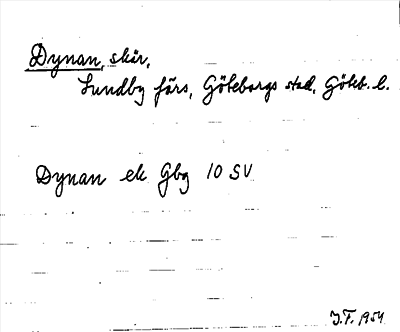 Dynan, skär,
Lundby förs, Göteborgs stad, Göteb. l.
Dynan ek Gbg 10 SV
J.F. 1954